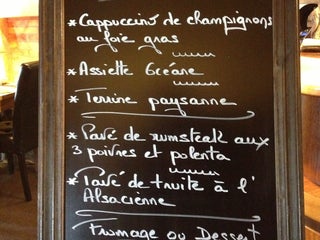 * Cappuccino de champignons
au foie gras
* Assiette Océane
* Terrine paysanne
* Pavé de rumsteak aux
3 poivres et polenta
* Pavé de truite à l'
Alsacienne
Fromage ou Dessert